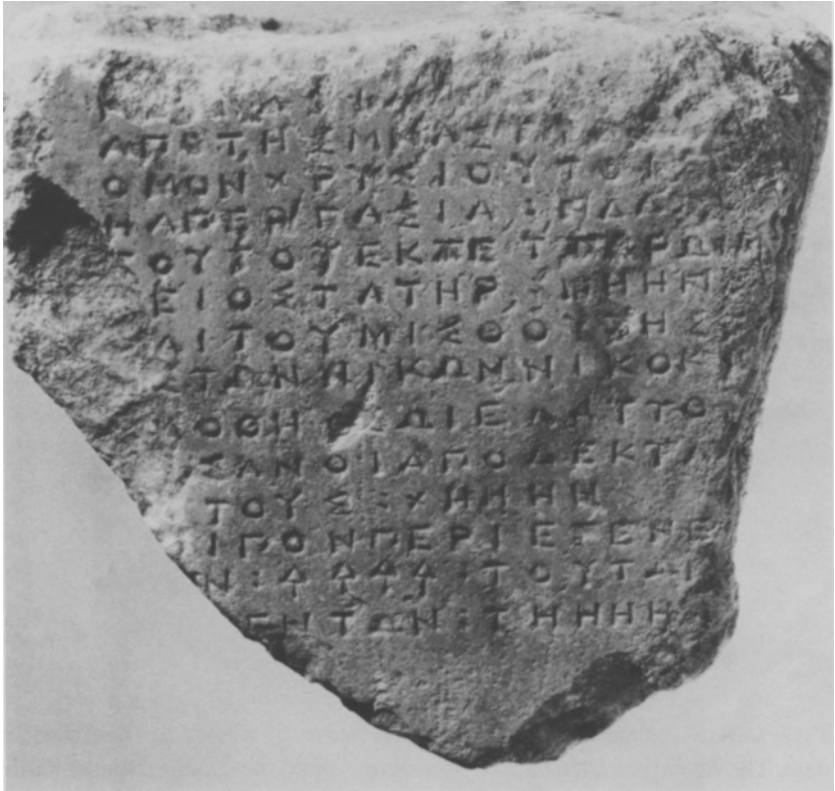 ΑΠΟΤΗΣΜΝΑΣΤ
ΟΜΟΝΧΡΥΣΙΟΥΤΟΙ
ΗΑΠΕΡΓΑΣΙΑ:ΠΔ
ΤΟΥΤΟΥΕΚΤΕΤΤΑΡΩΝ
ΕΙΟΣΤΑΤΗΡ:ΗΗΗΝ
ΔΙΤΟΥΜΙΣΘΟΥΤΗΣ
ΣΤΩΝΝΙΚΩΝΝΙΚΟΚ
ΔΟΘΗΟΣΩΙΕΛΑΤΤΟ
ΣΑΝΟΙΑΠΟΔΕΚΤΑ
ΤΟΥΣ:ΧΗΗΗΗ
ΙΠΟΝΠΕΡΙΕΓΕΝΕ
Ν:ΔΔΔΔ:ΤΟΥΤΑΙ
ΕΝΤΩΝ:ΤΗΗΗΗ